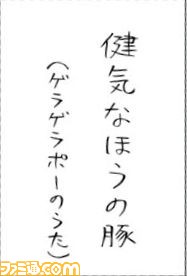 健気なほうの豚
(ゲラゲラポーのうた)
ファミ通.com